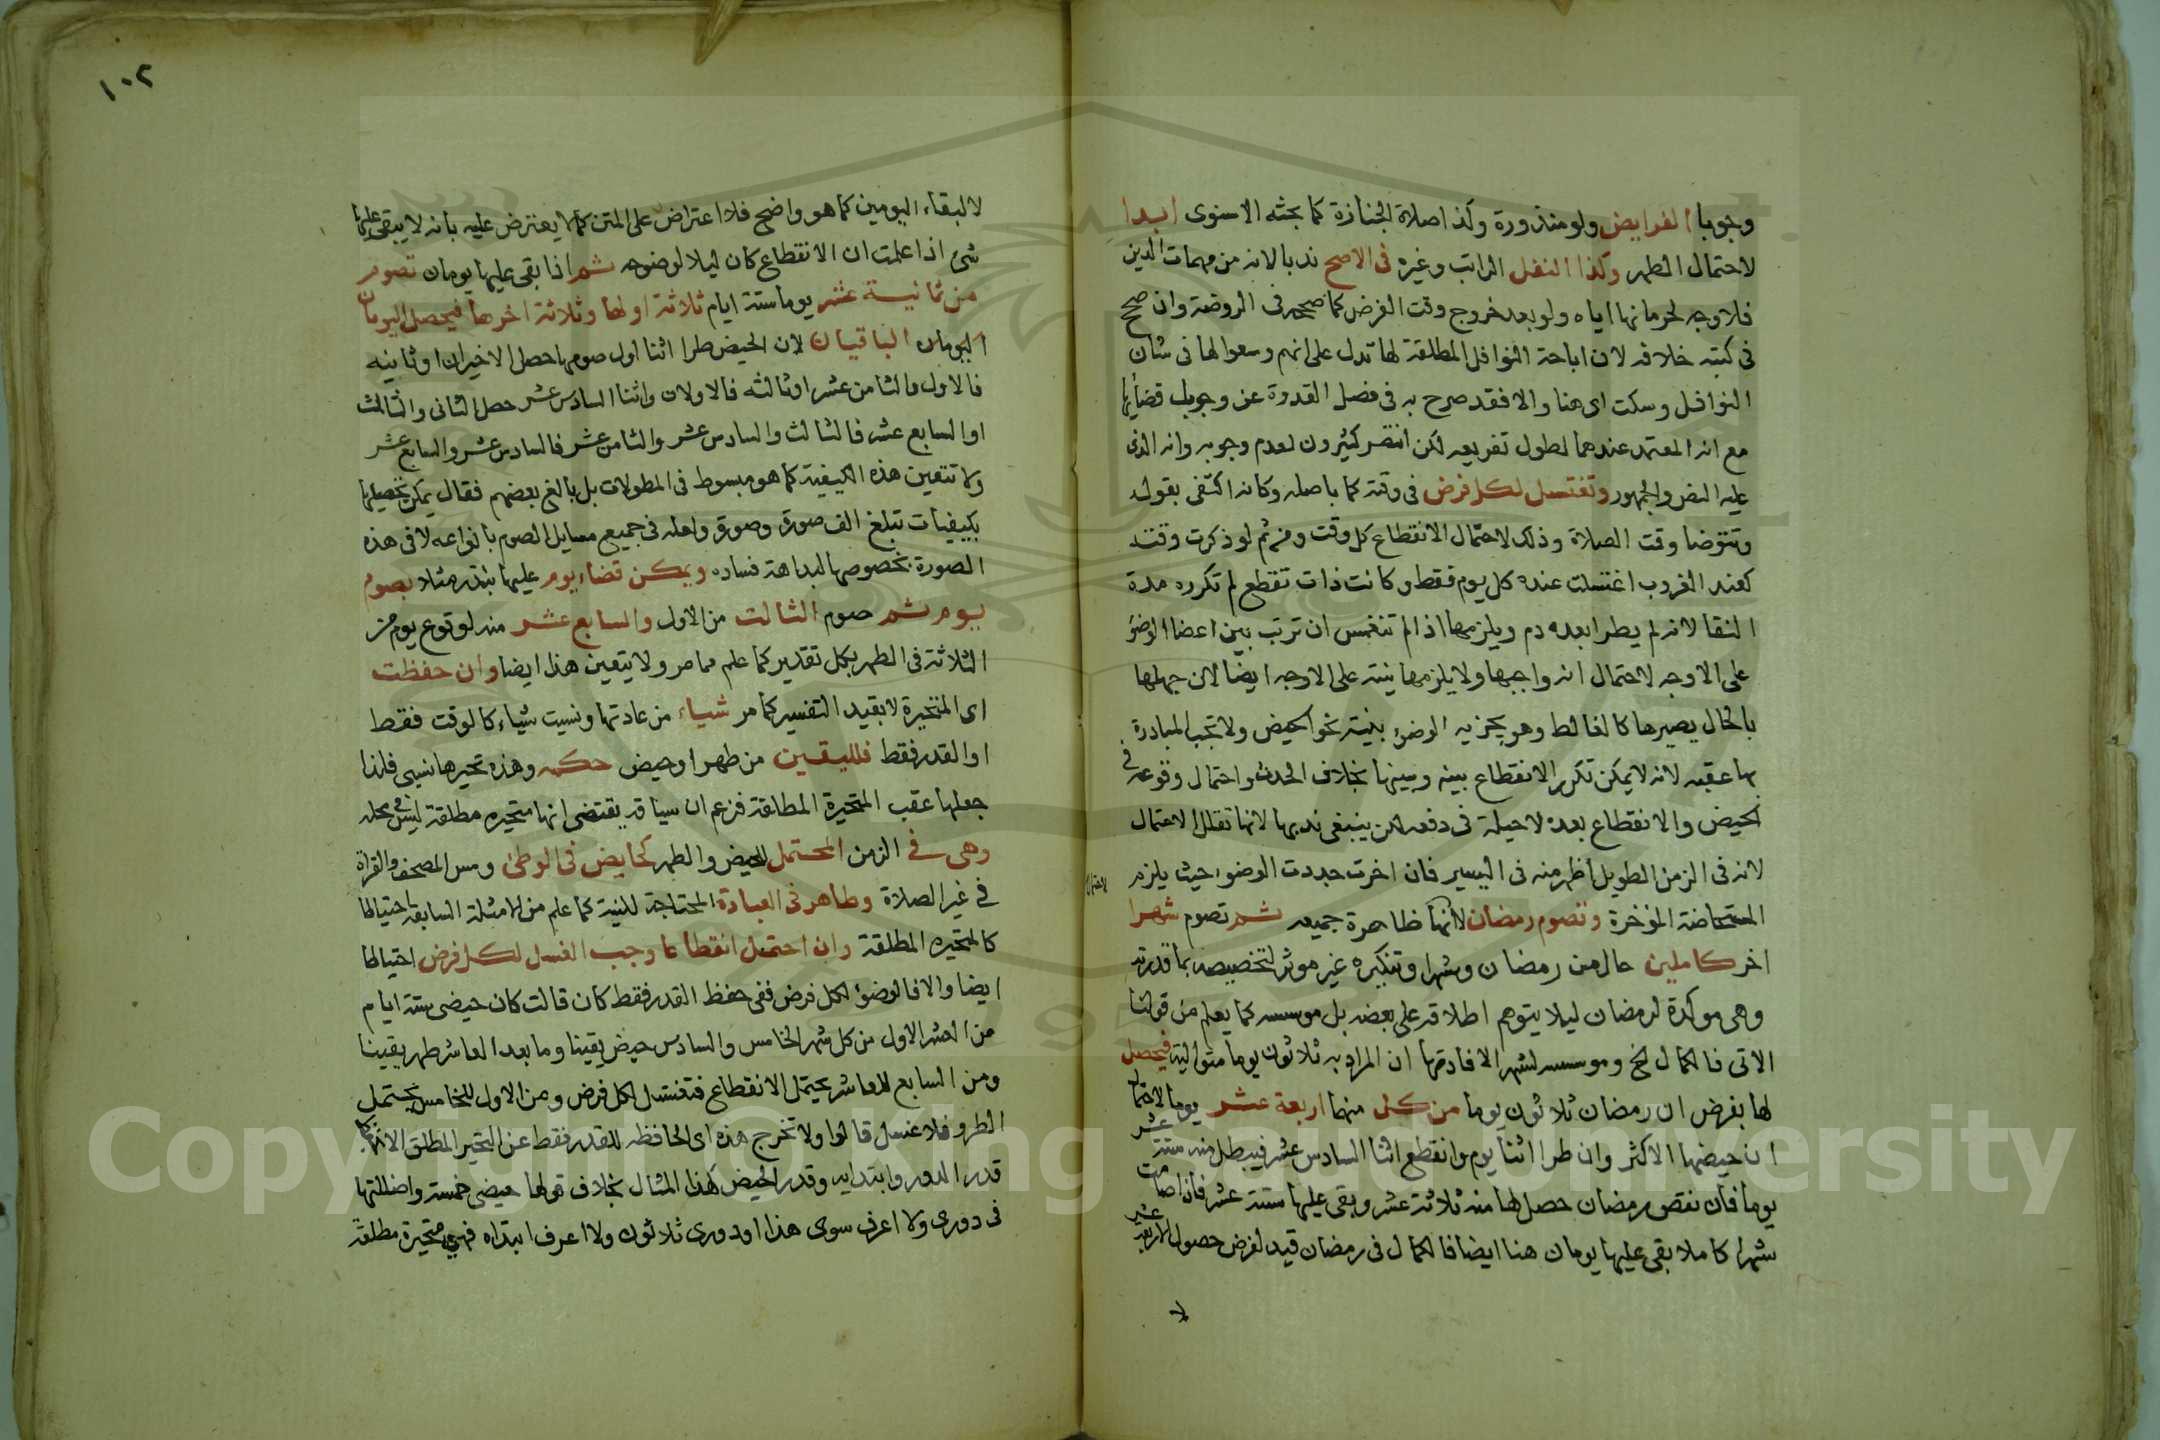 وجوبا الفرايض ولو منذورة وكذا صلاة الجنازة كما بحثه الاسنوى ابدا
لاحتمال الطهر وكذا النفل الراتب وغيره فى الاصح ندبا لانه من مهمات الدين
فلا وجه لحرمانها اياه ولو بعد خروج وقت الفرض كما صححه فى الروضة وان صحح
فى كتبه خلافه لان اباحة النوافل المطلقة لها تدل على انهم وسعوا لها فى شان
النوافل وسكت اى هنا والا فقد صرح به فى فصل القدوة عن وجوب قضايها
مع انه المعتمد عندهما لطول تفريعه لكن انتصر كثيرون لعدم وجوبه وانه الذى
عليه النص والجمهور وتغتسل لكل فرض فى وقته كما باصله وكانه اكتفى بقوله
وتتوضا وقت الصلاة وذلك لاحتمال الانقطاع كل وقت ومن ثم لو ذكرت وقته
كعند الغروب اغتسلت عنده كل يوم فقط وكانت ذات تقطع لم تكرره مدة
النقا لانه لم يطرا بعده دم ويلزمها اذا لم تنغمس ان ترتب بين اعضا الوضو
على الاوجه لاحتمال انه واجبها ولا يلزمها نيته على الاوجه ايضا لان جهلها
بالحال يصيرها كالغالط وهو يجزيه الوضو بنية نحو الحيض ولا تجب المبادرة
بها عقبه لانه لا يمكن تكرر الانقطاع بينه وبينها بخلاف الحدث واحتمال وقوعه فى
الحيض والانقطاع بعده لا حيلة فى دفعه لكن ينبغى ندبها لانها تقلل الاحتمال
لانه فى الزمن الطويل اظهر منه فى اليسير فان اخرت جددت الوضو حيث يلزم
المستحاضة المؤخرة وتصوم رمضان لانها طاهرة جميعه ثم تصوم شهرا
اخر كاملين حال من رمضان وشهرا وتنكيره غير موثر لتخصيصه بما قدرته
وهى موكدة لرمضان ليلا يتوهم اطلاقه على بعضه بل موسسه كما يعلم من قولنا
الاتى فالكمال الخ وموسسه لشهر الافادتها ان المراد به ثلاثون يوما متوالية فيحصل
لها بفرض ان رمضان ثلاثون يوما من كل منهما اربعة عشر يوما لاحتمال
ان حيضها الاكثر وان طرا اثنا يوم وانقطع اثنا السادس عشر فيبطل منه ستة عشر
يوما فان نقص رمضان حصل لها منه ثلاثة عشر وبقى عليها ستة عشر فاذا صامت
شهرا كاملا بقى عليها يومان هنا ايضا فالكمال فى رمضان قيد لغرض حصول الاربعة عشر
لا
١٠٢
لا لبقاء اليومين كما هو واضح فلا اعتراض على المتن كما لا يعترض عليه بانه لا يبقى عليها
شىء اذا علمت ان الانقطاع كان ليلا لوضوحه ثم اذا بقى عليها يومان تصوم
من ثمانية عشر يوما ستة ايام ثلاثة اولها وثلاثة اخرها فيحصل اليومان
اليومان الباقيان لان الحيض طرا اثنا اول صومها حصل الاخيران او ثانيه
فالاول والثامن عشر او ثالثه فالاولان واثنا السادس عشر حصل الثانى والثالث
او السابع عشر فالثالث والسادس عشر والثامن عشر فالسادس عشر والسابع عشر
ولا تتعين هذه الكيفية كما هو مبسوط فى المطولات بل بالغ بعضهم فقال يمكن تحصيلها
بكيفيات تبلغ الف صورة وصورة ولعله فى جميع مسايل الصوم بانواعه لا فى هذه
الصورة بخصوصها لبداهة فساده ويمكن قضاء يوم عليها بنذر مثلا بصوم
يوم ثم صوم الثالث من الاول والسابع عشر منه لوقوع يوم من
الثلاثة فى الطهر بكل تقدير كما علم مما مر ولا يتعين هذا ايضا وان حفظت
اى المتحيرة لا بقيد التفسير كما مر شياء من عادتها ونسيت شياء كالوقت فقط
او القدر فقط فلليقين من طهر او حيض حكمه وهذه تحيرها نسبى فلذا
جعلها عقب المتحيرة المطلقة فزعم ان سياقه يقتضى انها متحيره مطلقة ليس فى محله
وهى فى الزمن المحتمل للحيض والطهر كحايض فى الوطئ ومس المصحف والقراة
فى غير الصلاة وطاهر فى العبادة المحتاجة للنية كما علم من الامثلة السابقة احتياطا
كالمتحيره المطلقة وان احتمل انقطاعا وجب الغسل لكل فرض احتياطا
ايضا والا فالوضؤ لكل فرض ففى حفظ القدر فقط كان قالت كان حيضى ستة ايام
من العشر الاول من كل شهر الخامس والسادس حيض يقينا وما بعد العاشر طهر يقينا
ومن السابع للعاشر يحتمل الانقطاع فتغتسل لكل فرض ومن الاول للخامس يحتمل
الطرو فلا غسل قالوا ولا تخرج هذه اى الحافظه للقدر فقط عن التحير المطلق الا
قدر الدور وابتدايه وقدر الحيض كهذا المثال بخلاف قولها حيضى خمسة واضللتها
فى دورى ولا اعرف سوى هذا او دورى ثلاثون ولا اعرف ابتداه فهى متحيرة مطلقة
Copyright © King Saud University